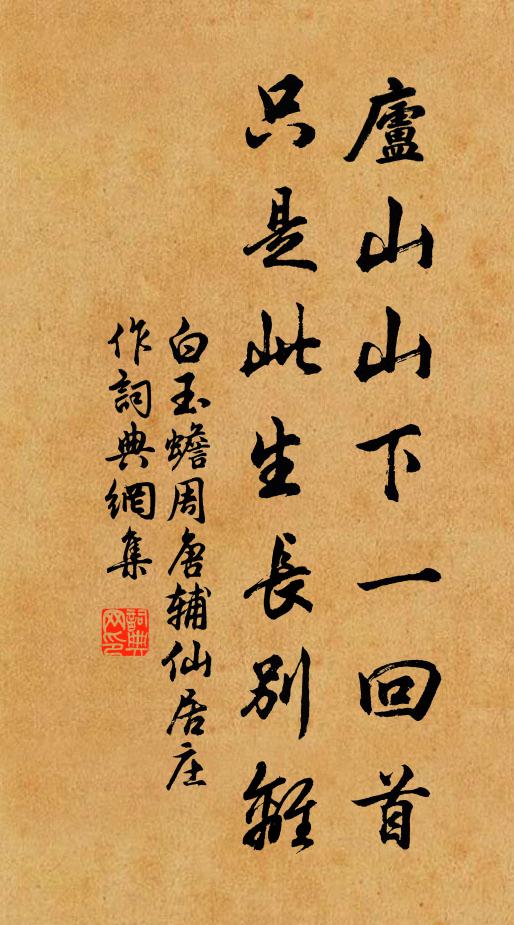 廬山山下一回首
只是此生長別離
白玉蟾周唐辅仙居庄
作詞典網集
詞典網印